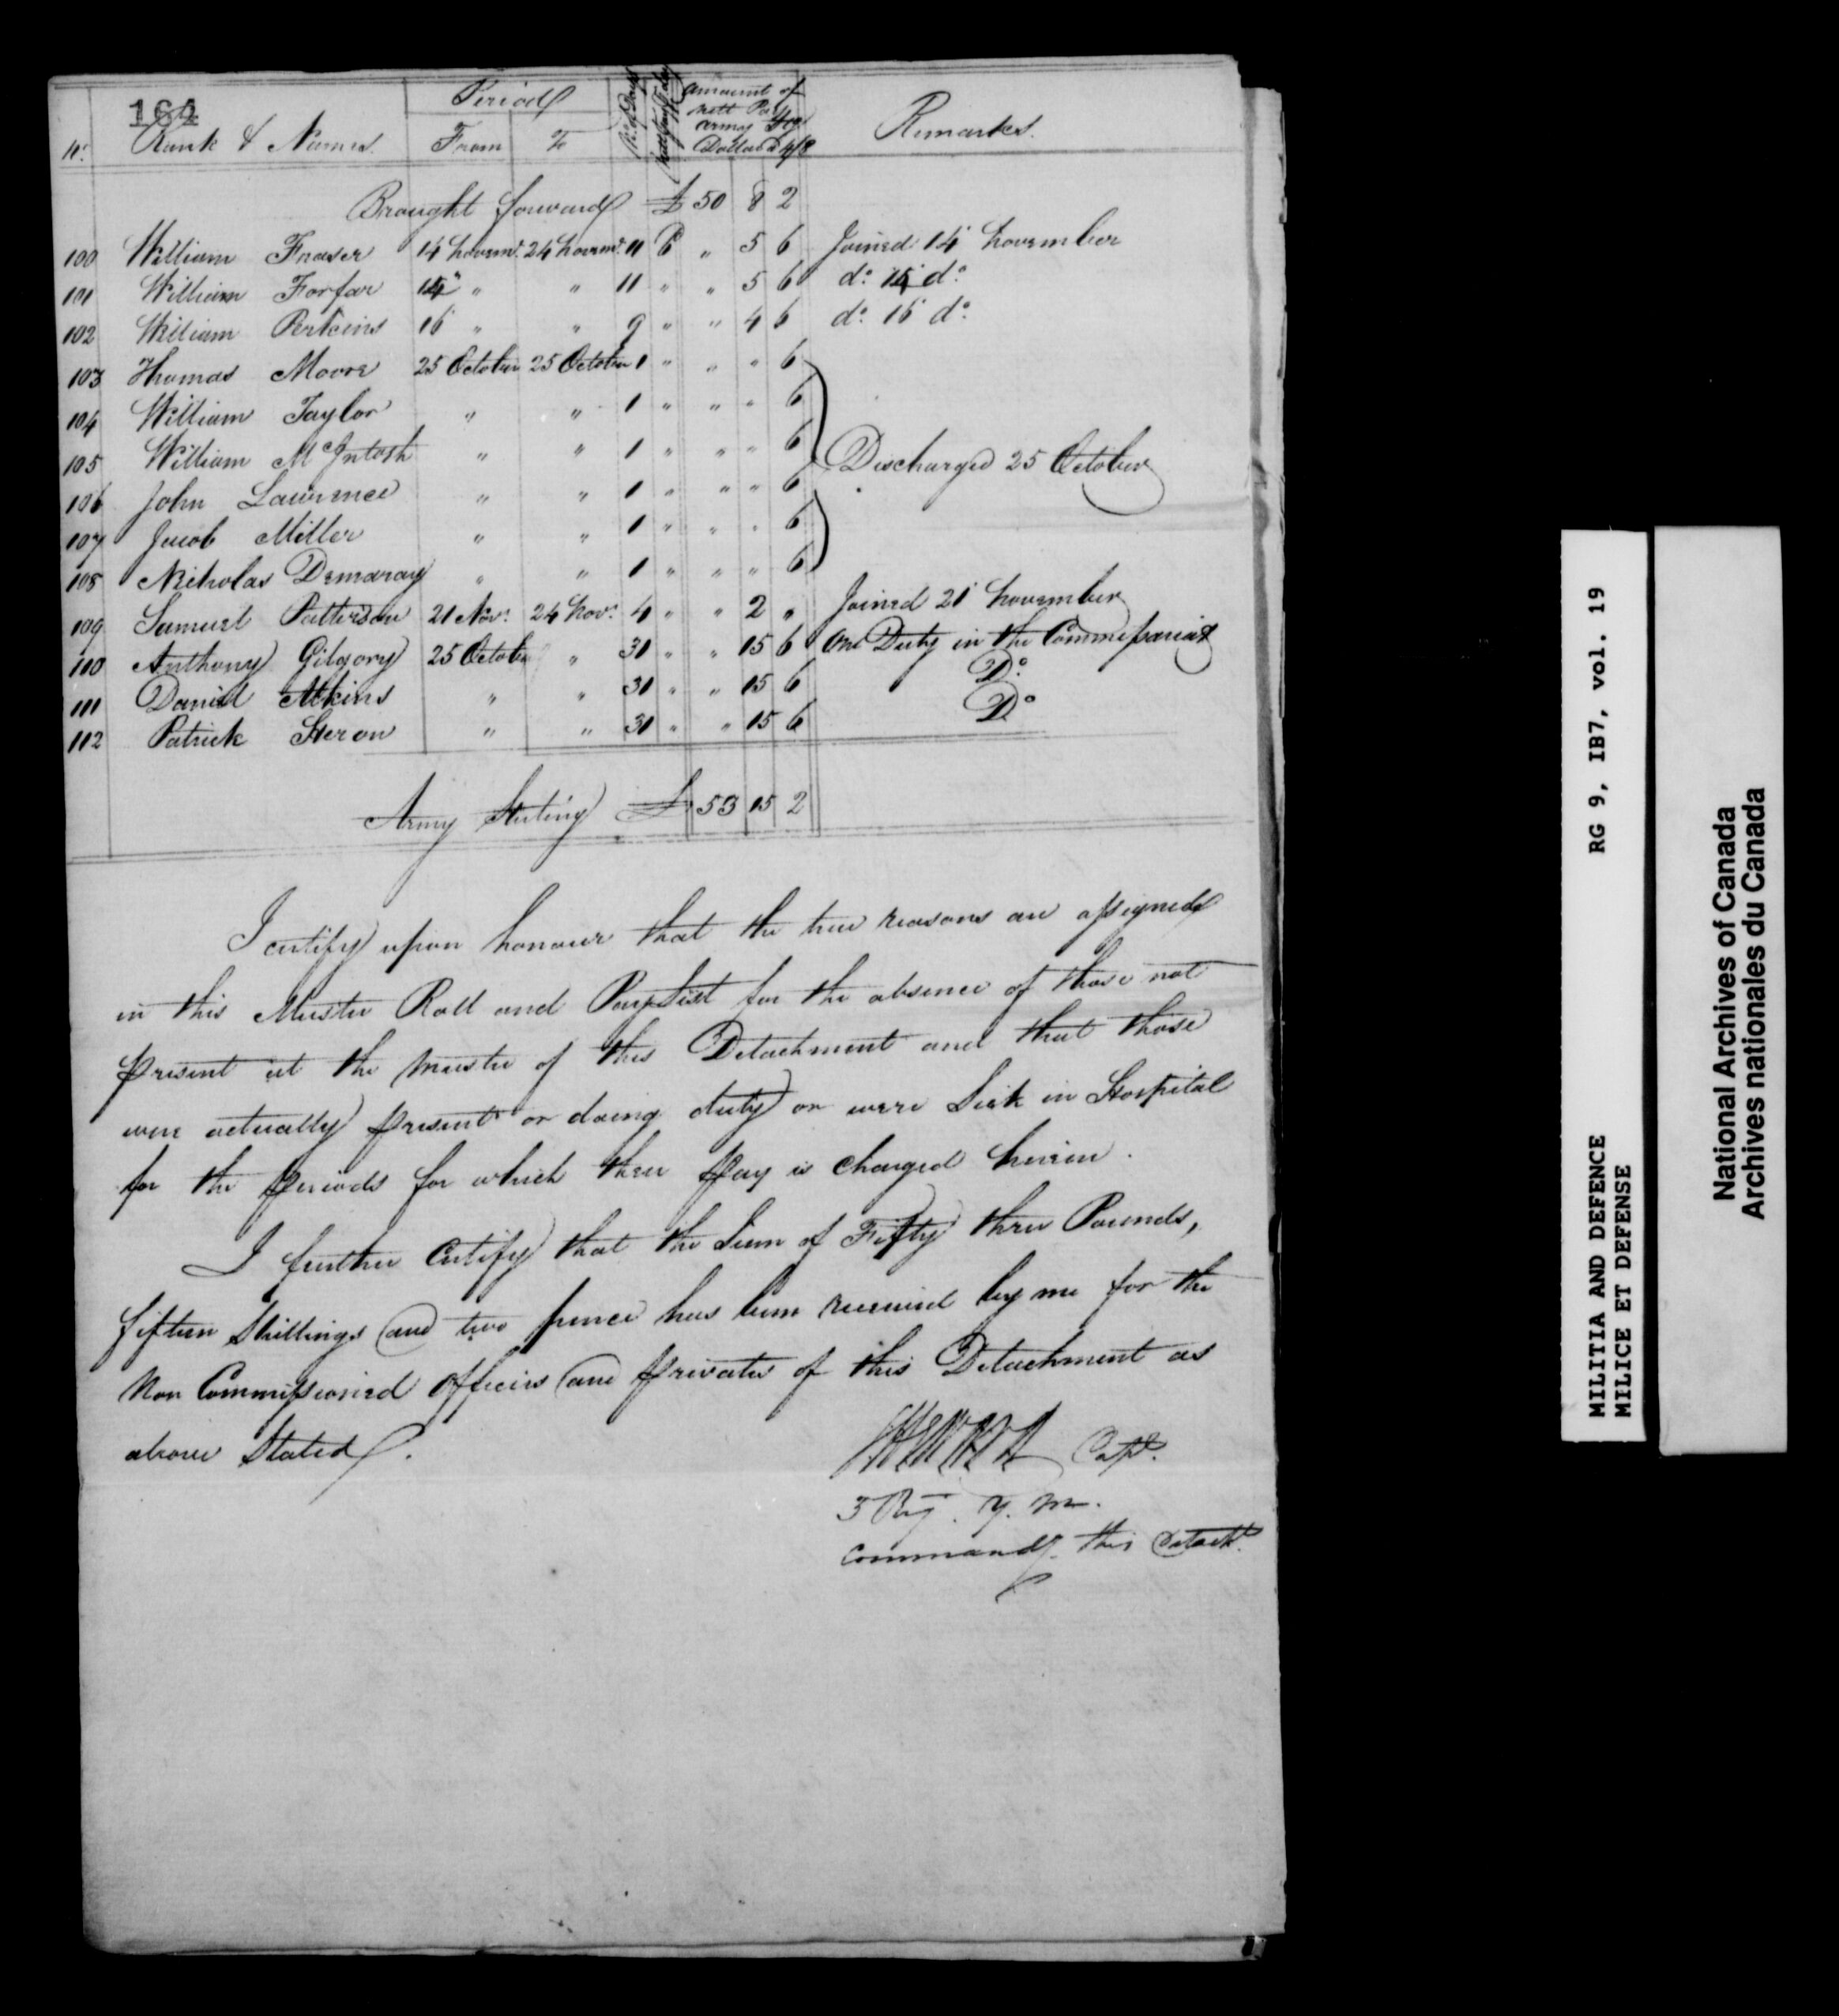 164
No. Rank & Names. Period From To No. of Days Rate per Day Amount of nett Pay Army Stg. Dollar @ 4/8 Remarks.
Brought forward £ 50 8 2
100 William Fraser 14 Novemr. 24 Novemr. 11 6 " 5 6 Joined 14 November
101 William Forfar 14 " " 11 " " 5 6 do. 14 do.
102 William Perkins 16 " " 9 " " 4 6 do. 16 do.
103 Thomas Moore 25 October 25 October 1 " " " 6
104 William Taylor " " 1 " " " 6
105 William McIntosh " " 1 " " " 6 Discharged 25 October
106 John Lawrence " " 1 " " " 6
107 Jacob Miller " " 1 " " " 6
108 Nicholas Demaray " " 1 " " " 6
109 Samuel Patterson 21 Nov. 24 Nov. 4 " " 2 " Joined 21 November
110 Anthony Gilgory 25 October " 31 " " 15 6 On Duty in the Commissariat
111 Daniel Atkins " " 31 " " 15 6 Do.
112 Patrick Heron " " 31 " " 15 6 Do.
Army Sterling £ 53 15 2
I certify upon honour that the true reasons are assigned
in this Muster Roll and Pay List for the absence of those not
present at the muster of this Detachment and that those
were actually present or doing duty or were Sick in Hospital
for the periods for which their Pay is charged herein.
I further Certify that the Sum of Fifty three Pounds,
fifteen Shillings and two pence has been received by me for the
Non Commissioned officers and privates of this Detachment as
above Stated.
Capt.
3 Reg. Y. M.
commandg. this Detacht.
MILITIA AND DEFENCE RG 9, IB7, vol. 19
MILICE ET DEFENSE
National Archives of Canada
Archives nationales du Canada